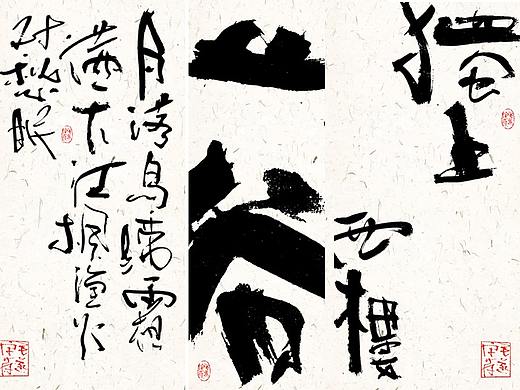 獨上
西樓
山谷
月落烏啼霜
滿天江楓漁火
對愁眠